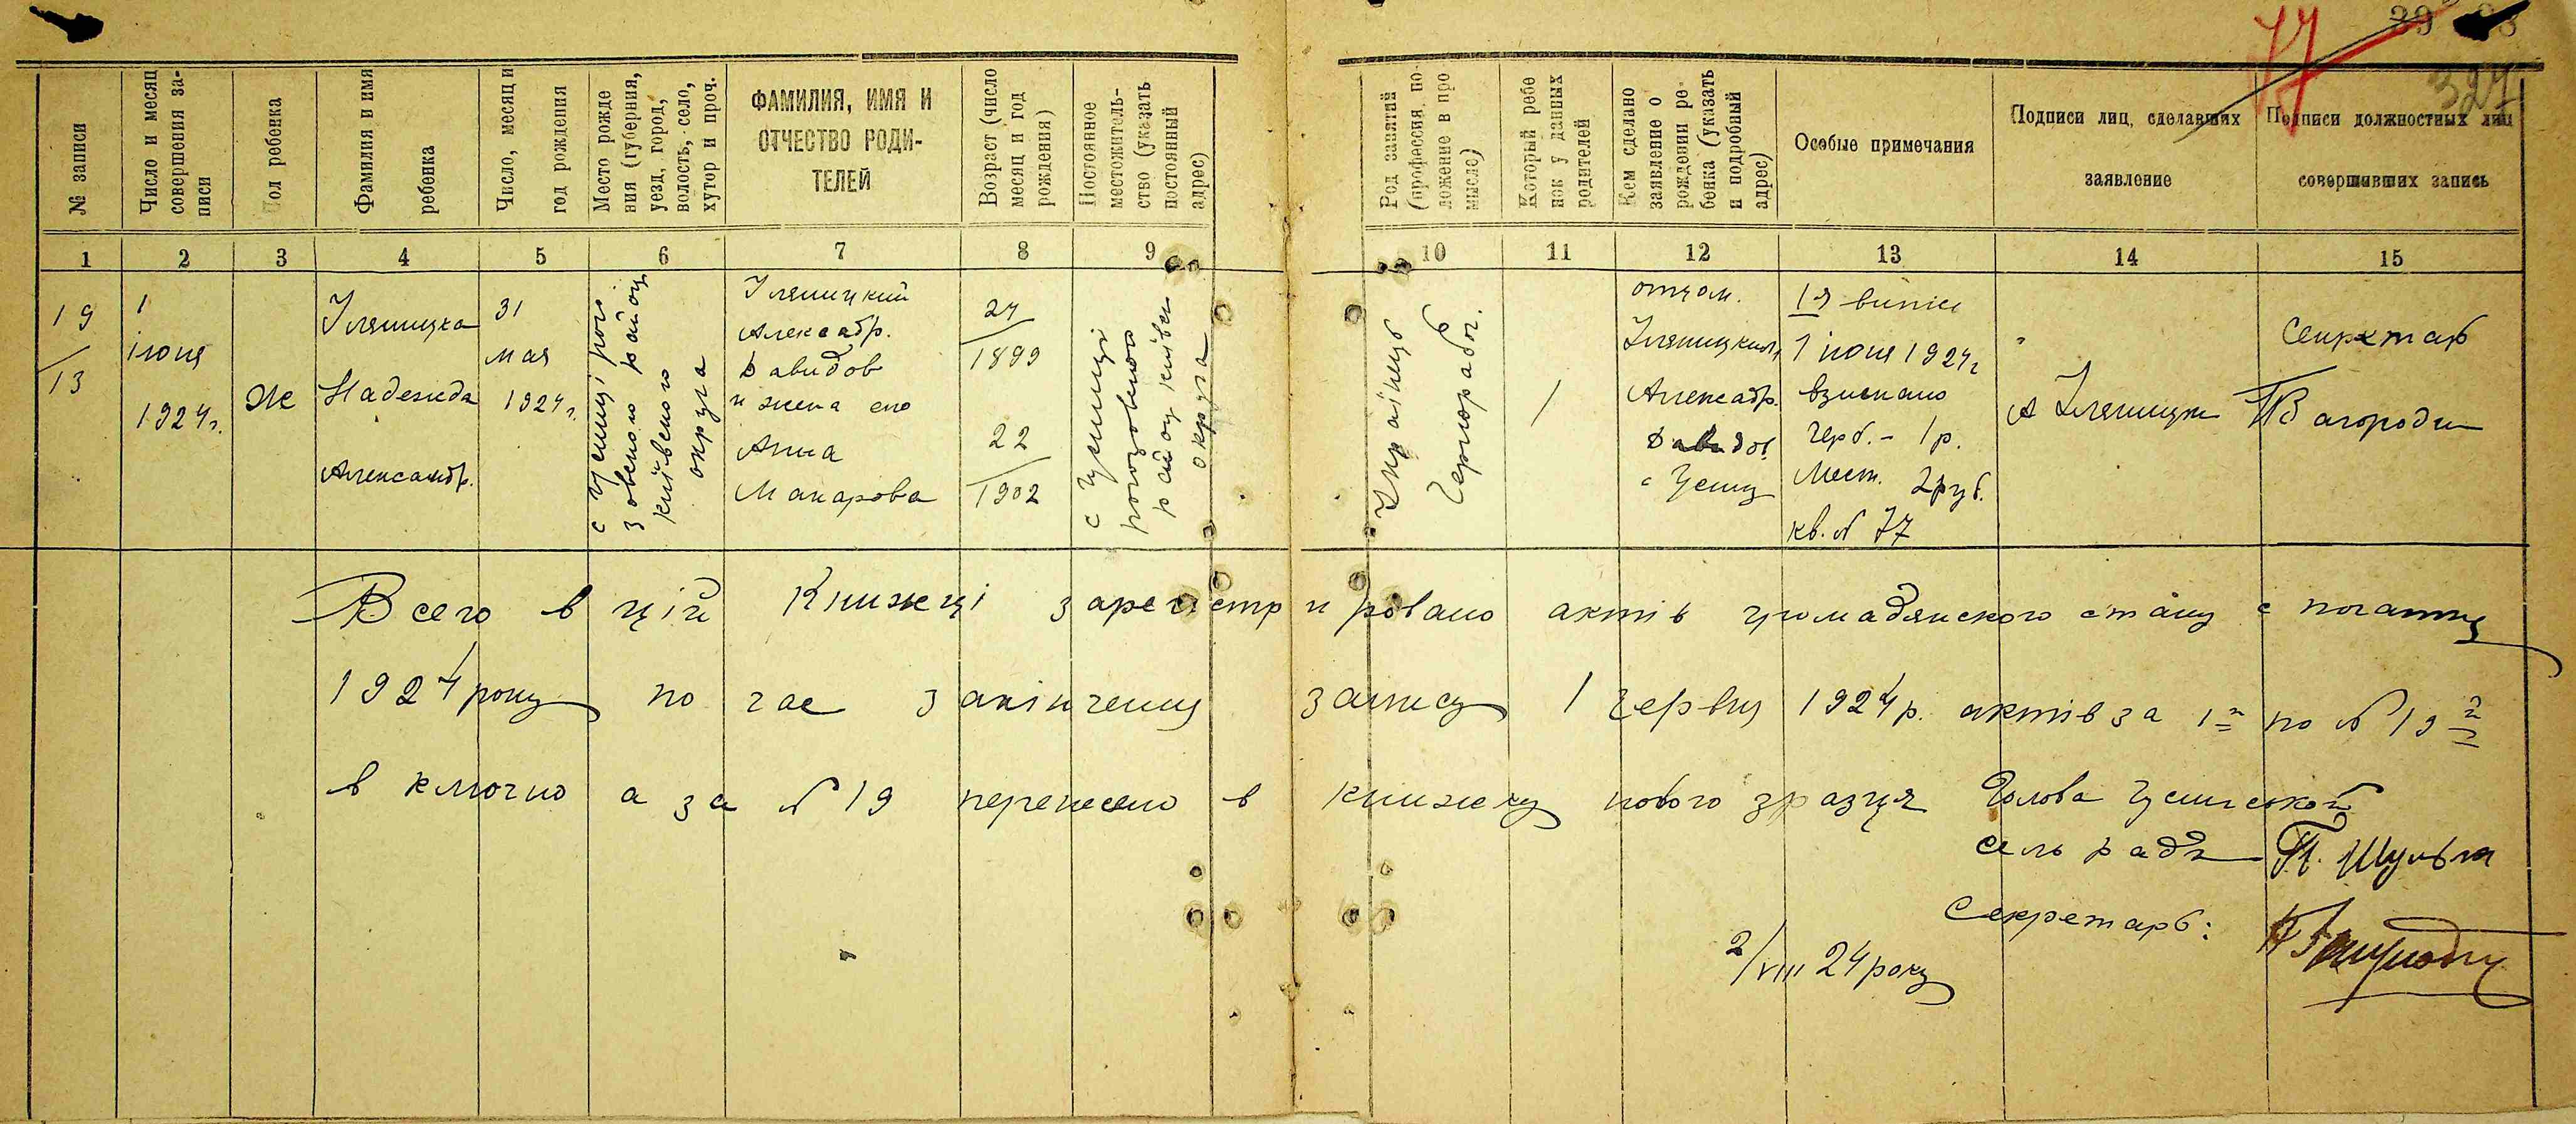 77
327
№ записи
Число и месяц
совершения за-
писи
Пол ребенка
Фамилия и имя
ребенка
Число, месяц и
год рождения
Место рожде
ния (губерния,
уезд, город,
волость, село,
хутор и проч.
ФАМИЛИЯ, ИМЯ И
ОТЧЕСТВО РОДИ-
ТЕЛЕЙ
Возраст (число
месяц и год
рождения)
Постоянное
местожитель-
ство (указать
постоянный
адрес)
Род занятий
(профессия, по-
ложение в про
мысле)
Который ребе
нок у данных
родителей
Кем сделано
заявление о
рождении ре-
бенка (указать
и подробный
адрес)
Особые примечания
Подписи лиц, сделавших
заявление
Подписи должностных лиц
совершивших запись
1 2 3 4 5 6 7 8 9 10 11 12 13 14 15
19
13
1
июня
1924г.
Ж
Надежда
Александр.
31
мая
1924г.
округа
Александр.
Давидов
и жена его
Анна
Макарова
27
1899
22
1902
с
округа
Українець
Чернораб.
1
отцом.
Александр.
Давидов.
1 июня 1924г
взыскано
герб. - 1р.
Мест. 2руб.
кв. № 77
Секретарь
Всего в цій Книжці зарегистрировано актів громадянского стану с початку
1924 року по час закінченя запису 1 червня 1924р. актів за 1 по № 19
включно а за № 19 перенесено в книжку нового зразця Голова
сель ради П. Шульга
Секретарь:
2/VIII 24 року